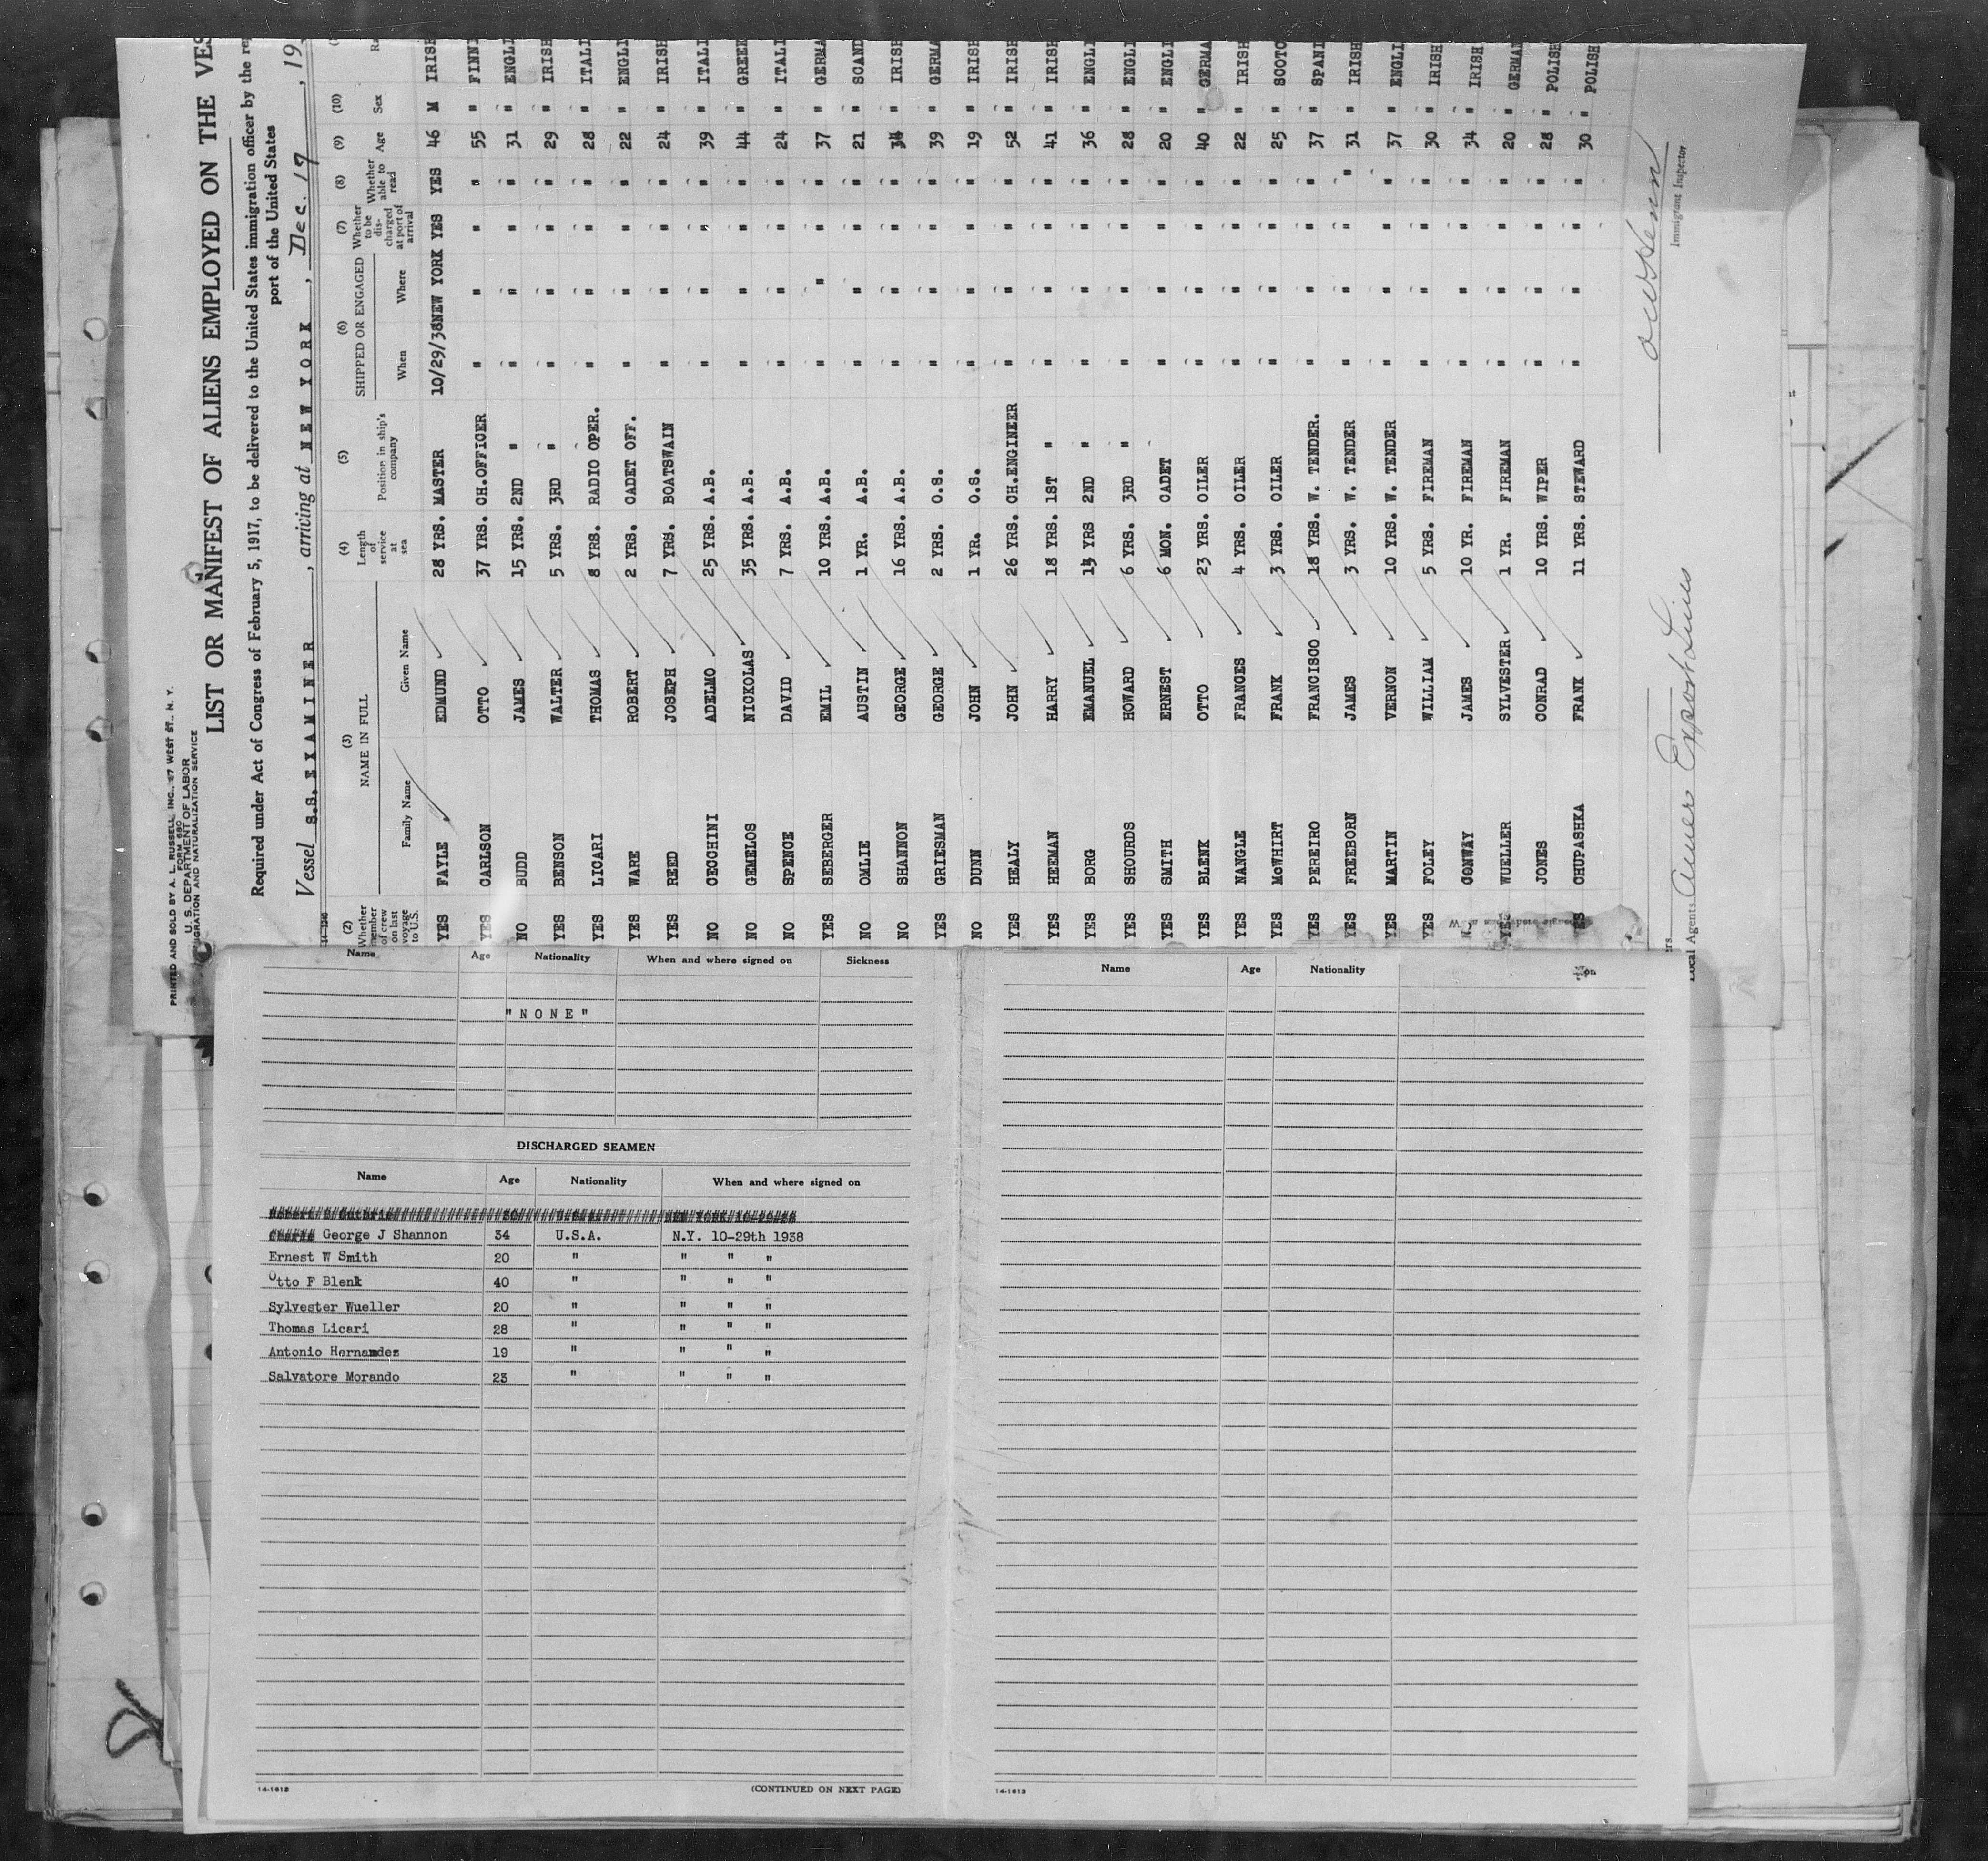 PRINTED AND SOLD BY A. L. RUSSELL, INC., 67 WEST ST., N. Y.
FORM 680
U. S. DEPARTMENT OF LABOR
GRATION AND NATURALIZATION SERVICE
LIST OR MANIFEST OF ALIENS EMPLOYED ON THE VES
Required under Act of Congress of February 5, 1917, to be delivered to the United States immigration officer by the re
port of the United States
Vessel S.S. EXAMINER, arriving at NEW YORK, Dec. 17, 19
(2) (3) (4) (5) (6) (7) (8) (9) (10)
Whether member of crew on last voyage to U.S. NAME IN FULL Family Name Given Name Length of service at sea Position in ship's company SHIPPED OR ENGAGED When Where Whether to be discharged at port of arrival Whether able to read Age Sex Ra
YES FAYLE EDMUND 28 YRS. MASTER 10/29/38 NEW YORK YES YES 46 M IRISH
YES CARLSON OTTO 37 YRS. CH.OFFICER " " " " 55 " FINNI
NO BUDD JAMES 15 YRS. 2ND " " " " " 31 " ENGLI
YES BENSON WALTER 5 YRS. 3RD " " " " " 29 " IRISH
YES LICARI THOMAS 8 YRS. RADIO OPER. " " " " 28 " ITALI
YES WARE ROBERT 2 YRS. CADET OFF. " " " " 22 " ENGLI
YES REED JOSEPH 7 YRS. BOATSWAIN " " " " 24 " IRISH
NO CECCHINI ADELMO 25 YRS. A.B. " " " " 39 " ITALI
NO GEMELOS NICKOLAS 35 YRS. A.B. " " " " 44 " GREEK
NO SPENCE DAVID 7 YRS. A.B. " " " " 24 " ITALI
YES SEBERGER EMIL 10 YRS. A.B. " " " " 37 " GERMA
NO OMLIE AUSTIN 1 YR. A.B. " " " " 21 " SCAND
NO SHANNON GEORGE 16 YRS. A.B. " " " " 34 " IRISH
YES GRIESMAN GEORGE 2 YRS. O.S. " " " " 39 " GERMA
NO DUNN JOHN 1 YR. O.S. " " " " 19 " IRISH
YES HEALY JOHN 26 YRS. CH.ENGINEER " " " " 52 " IRISH
YES HEEMAN HARRY 18 YRS. 1ST " " " " " 41 " IRISH
YES BORG EMANUEL YRS 2ND " " " " " 36 " ENGLI
YES SHOURDS HOWARD 6 YRS. 3RD " " " " " 28 " ENGLI
YES SMITH ERNEST 6 MON. CADET " " " " 20 " ENGLI
YES BLENK OTTO 23 YRS. OILER " " " " 40 " GERMA
YES NANGLE FRANCES 4 YRS. OILER " " " " 22 " IRISH
YES McWHIRT FRANK 3 YRS. OILER " " " " 25 " SCOTC
YES PEREIRO FRANCISCO 18 YRS. W. TENDER. " " " " 37 " SPANI
YES FREEBORN JAMES 3 YRS. W. TENDER " " " " 31 " IRISH
YES MARTIN VERNON 10 YRS. W. TENDER " " " " 37 " ENGLI
YES FOLEY WILLIAM 5 YRS. FIREMAN " " " " 30 " IRISH
CONWAY JAMES 10 YR. FIREMAN " " " " 34 " IRISH
YES WUELLER SYLVESTER 1 YR. FIREMAN " " " " 20 " GERMAN
JONES CONRAD 10 YRS. WIPER " " " " 28 " POLISH
YES CHUPASHKA FRANK 11 YRS. STEWARD " " " " 30 " POLISH
Local Agents Amer Export Lines
Immigrant Inspector
Name Age Nationality When and where signed on Sickness
"NONE"
DISCHARGED SEAMEN
Name Age Nationality When and where signed on
George J Shannon 34 U.S.A. N.Y. 10-29th 1938
Ernest W Smith 20 " " " "
Otto F Blenk 40 " " " "
Sylvester Wueller 20 " " " "
Thomas Licari 28 " " " "
Antonio Hernandez 19 " " " "
Salvatore Morando 23 " " " "
14-1613 (CONTINUED ON NEXT PAGE)
Name Age Nationality
14-1613